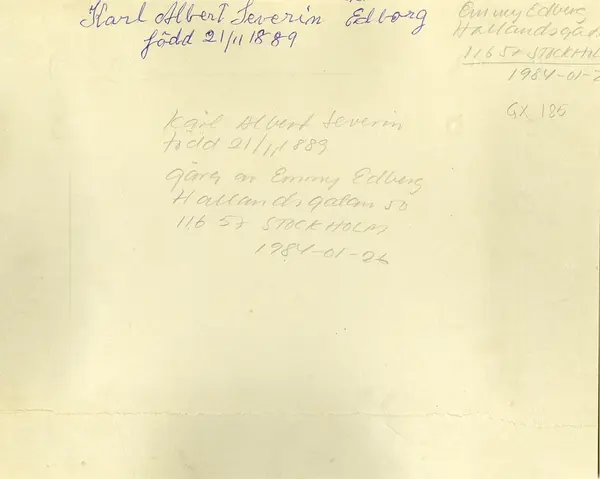 Karl Albert Severin Edborg
född 21/11 1889
Emmy Edberg
Hallandsgata
116 57 STOCKHOL
1984-01-2
GX 185
Karl Albert Severin
född 21/11 1889
Gåva av Emmy Edberg
Hallandsgatan 50
116 57 STOCKHOLM
1984-01-26